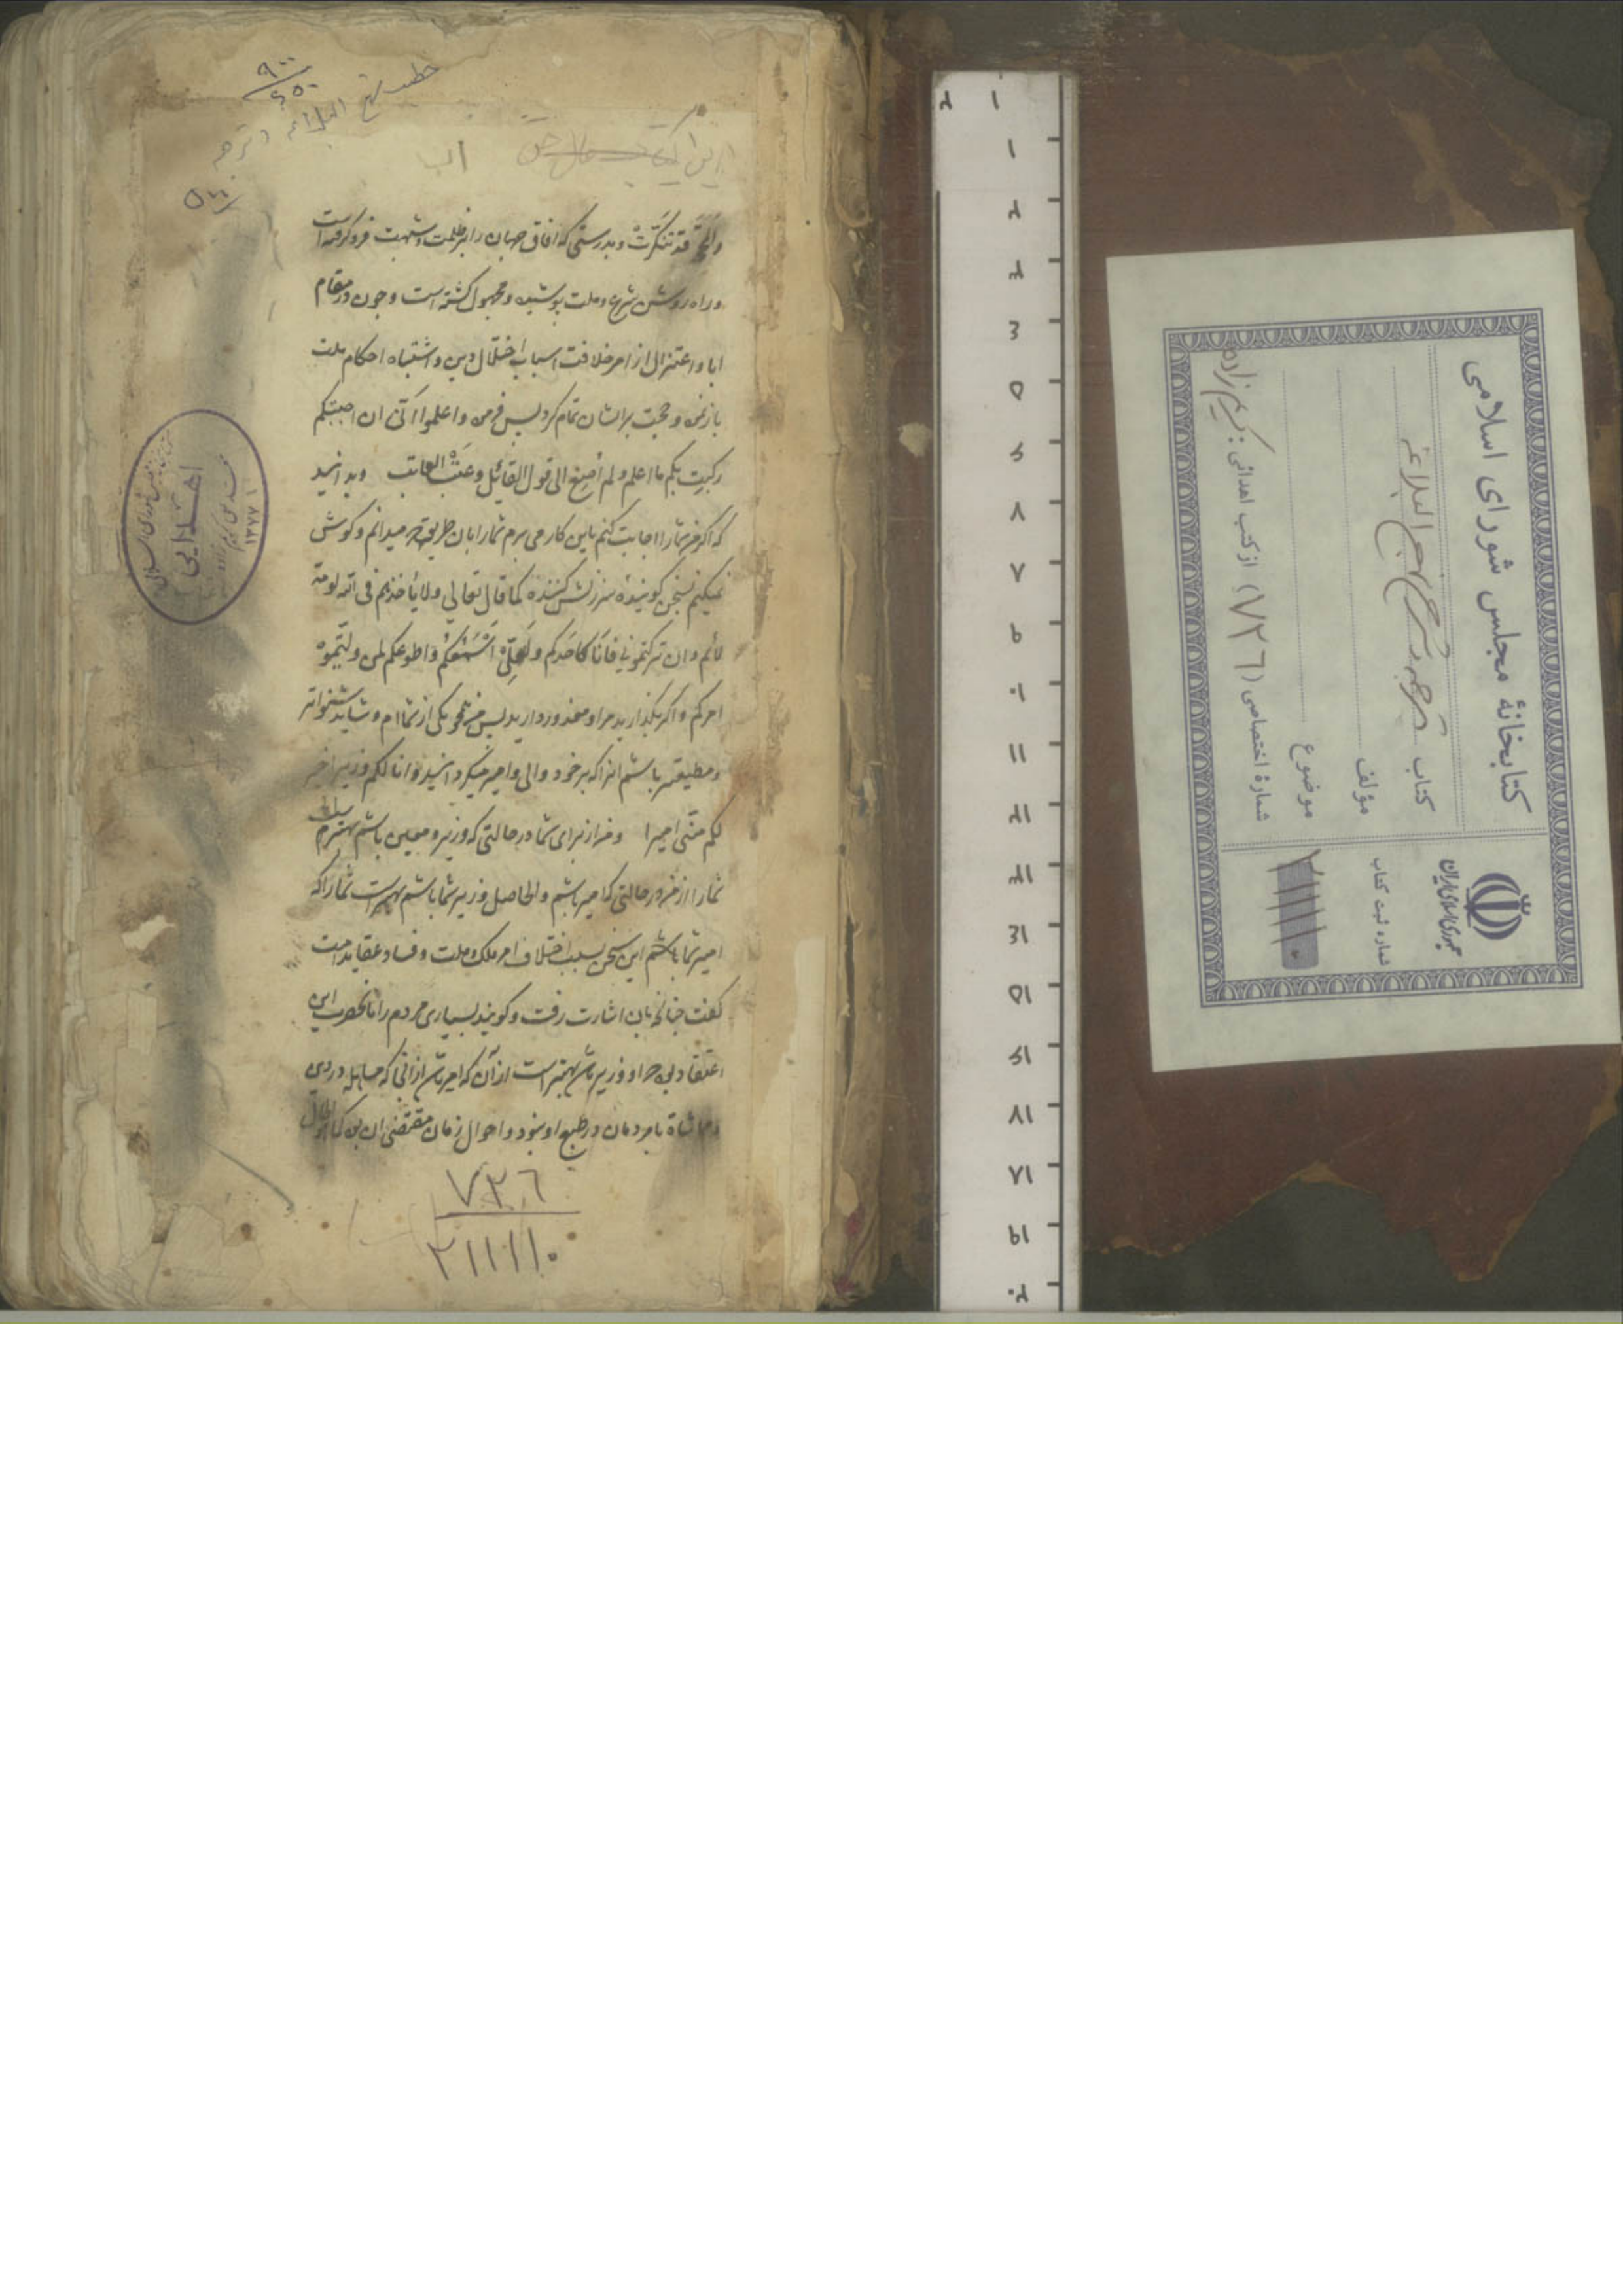 خطب نهج البلاغه و ترجمه
۹۰۰
۶۵۰
۵۰۰
این کتاب
والمحجة قد تنکّرت و بدرستی که افاق جهان را ابر ظلمت و شبهت فرو کرفته است
و راه روشن شرع و ملت پوشیده و مجهول کشته است و چون در مقام
ابا و اعتزال از امر خلافت اسباب اختلال دین و اشتباه احکام ملت
باز نمود و حجت بر ایشان تمام کرد پس فرمود واعلموا انی ان اجبتکم
رکبت بکم ما اعلم ولم اصغ الی قول القائل وعتب العاتب و بدانید
که اکر من شما را اجابت کنم باین کار می برم شما را بان طریق که میدانم و کوش
نمیکنم بسخن کوینده و سرزنش کننده کما قال تعالی ولا یأخذهم فی الله لومة
لائم وان ترکتمونی فانا کاحدکم ولعلّی اسمعکم واطوعکم لمن ولّیتموه
امرکم و اکر بکذارید مرا و معذور دارید پس من همچو یکی از شماام و شاید شنواتر
و مطیعتر باشم انرا که بر خود والی و امیر میکردانید وانا لکم وزیرا خیر
لکم منّی امیرا و من از برای شما در حالتی که وزیر و معین باشم بهترم
شما را از من در حالتی که امیر باشم و الحاصل وزیر شما باشم بهتر است شما را که
امیر شما باشم این سخن بسبب اختلاف امر ملک و ملت و فساد عقاید امت
کفت چنانچه بان اشارت رفت و کویند بسیاری مردم را با انحضرت این
اعتقاد بود که او وزیر باشد بهتر است از آن که امیر باشد از انکه مساهله در دین
و مماشاة با مردمان در طبع او نبود و احوال زمان مقتضی ان بود
۷۲۶
۲۱۱۱۱۰
اهدایی
۱۸۸۸۱
کتابخانهٔ مجلس شورای اسلامی
کتاب ترجمه و شرح نهج البلاغه
مؤلف
موضوع
شمارهٔ اختصاصی (۷۲۶) از کتب اهدائی: کریم زاده
جمهوری اسلامی ایران
شماره ثبت کتاب
۲۱۱۱۱۰
۱ ۲
۱
۲
۳
۴
۵
۶
۷
۸
۹
۱۰
۱۱
۱۲
۱۳
۱۴
۱۵
۱۶
۱۷
۱۸
۱۹
۲۰